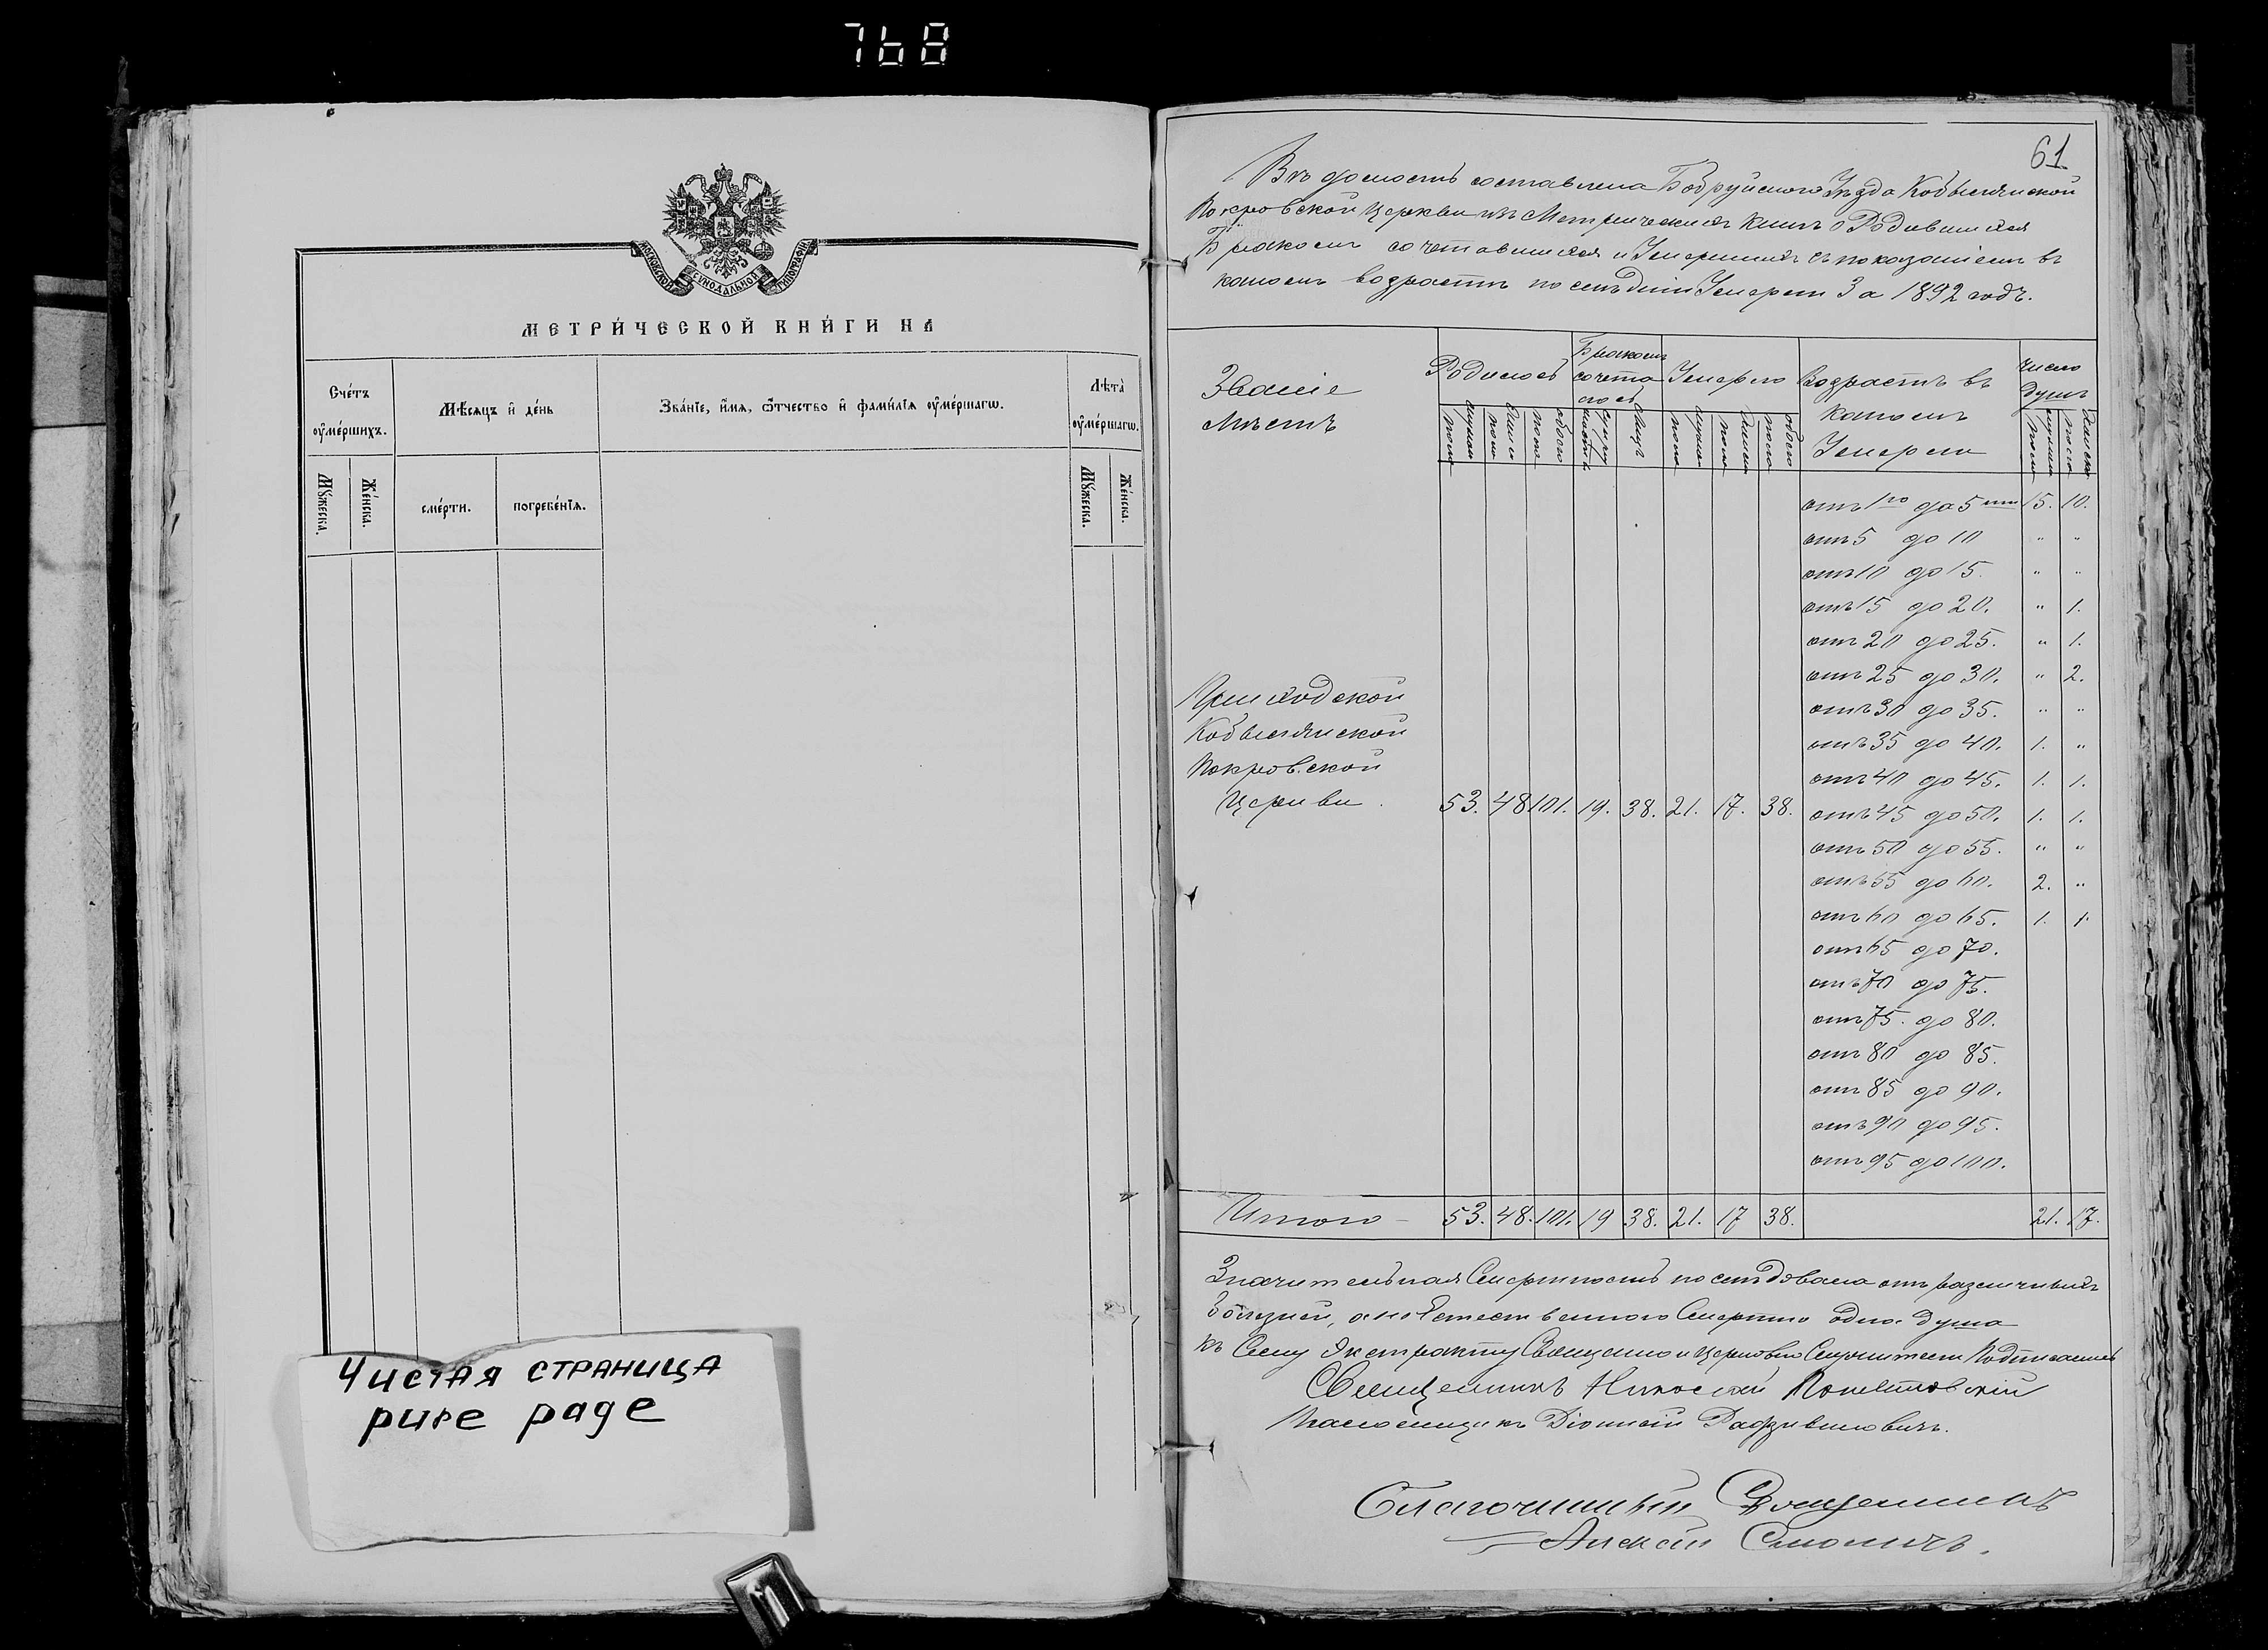 768
МОСКОВСКОЙ СѴНОДАЛЬНОЙ ТИПОГРАФІИ
МЕТРИ́ЧЕСКОЙ КНИ́ГИ НА
Сче́тъ ᲂу҆ме́ршихъ.
Мѣ́сяцъ и҆ де́нь
Зва́нїе, и҆́мя, ѻ҆́тчество и҆ фами́лїя ᲂу҆ме́ршагѡ.
Лѣта̀ ᲂу҆ме́ршагѡ.
Мꙋ́жеска.
Же́нска.
сме́рти.
погребе́нїѧ.
Мꙋ́жеска.
Же́нска.
Чистая страница
pure page
61
Вѣдомость составлена Бобруйскаго Уѣзда Кобылянской
Покровской Церкви изъ Метрическихъ книгъ о Родившихся
Бракомъ сочетавшихся и Умершихъ съ показаніемъ въ
какомъ возрастѣ последніи Умерли За 1892 годъ.
Званіе
мѣстъ
Родилось
Бракомъ
сочета
лось
Умерло
Возрастъ въ
какомъ
Умерли
Число
душъ
отъ 1го до 5ти 15. 10.
отъ 5 до 10 " "
отъ 10 до 15. " "
отъ 15 до 20. " 1.
отъ 20 до 25. " 1.
отъ 25 до 30. " 2.
отъ 30 до 35. " "
отъ 35 до 40. 1. "
отъ 40 до 45. 1. 1.
Приходской
Кобылянской
Покровской
Церкви 53. 48 101. 19. 38. 21. 17. 38. отъ 45 до 50. 1. 1.
отъ 50 до 55. " "
отъ 55 до 60. 2. "
отъ 60 до 65. 1. 1.
отъ 65 до 70.
отъ 70 до 75.
отъ 75. до 80.
отъ 80 до 85.
отъ 85 до 90.
отъ 90 до 95.
отъ 95 до 100.
Итого – 53. 48. 101. 19 38. 21. 17 38. 21. 17.
Значительная Смертность последовала отъ различныхъ
болезней, а не Естественною Смертію одна душа
къ Сему Экстракту Священно и Церковно Служители Подписались
Священникъ Николай
Псаломщикъ Діонисій
Благочинный Священникъ
Алексій Смоличъ.